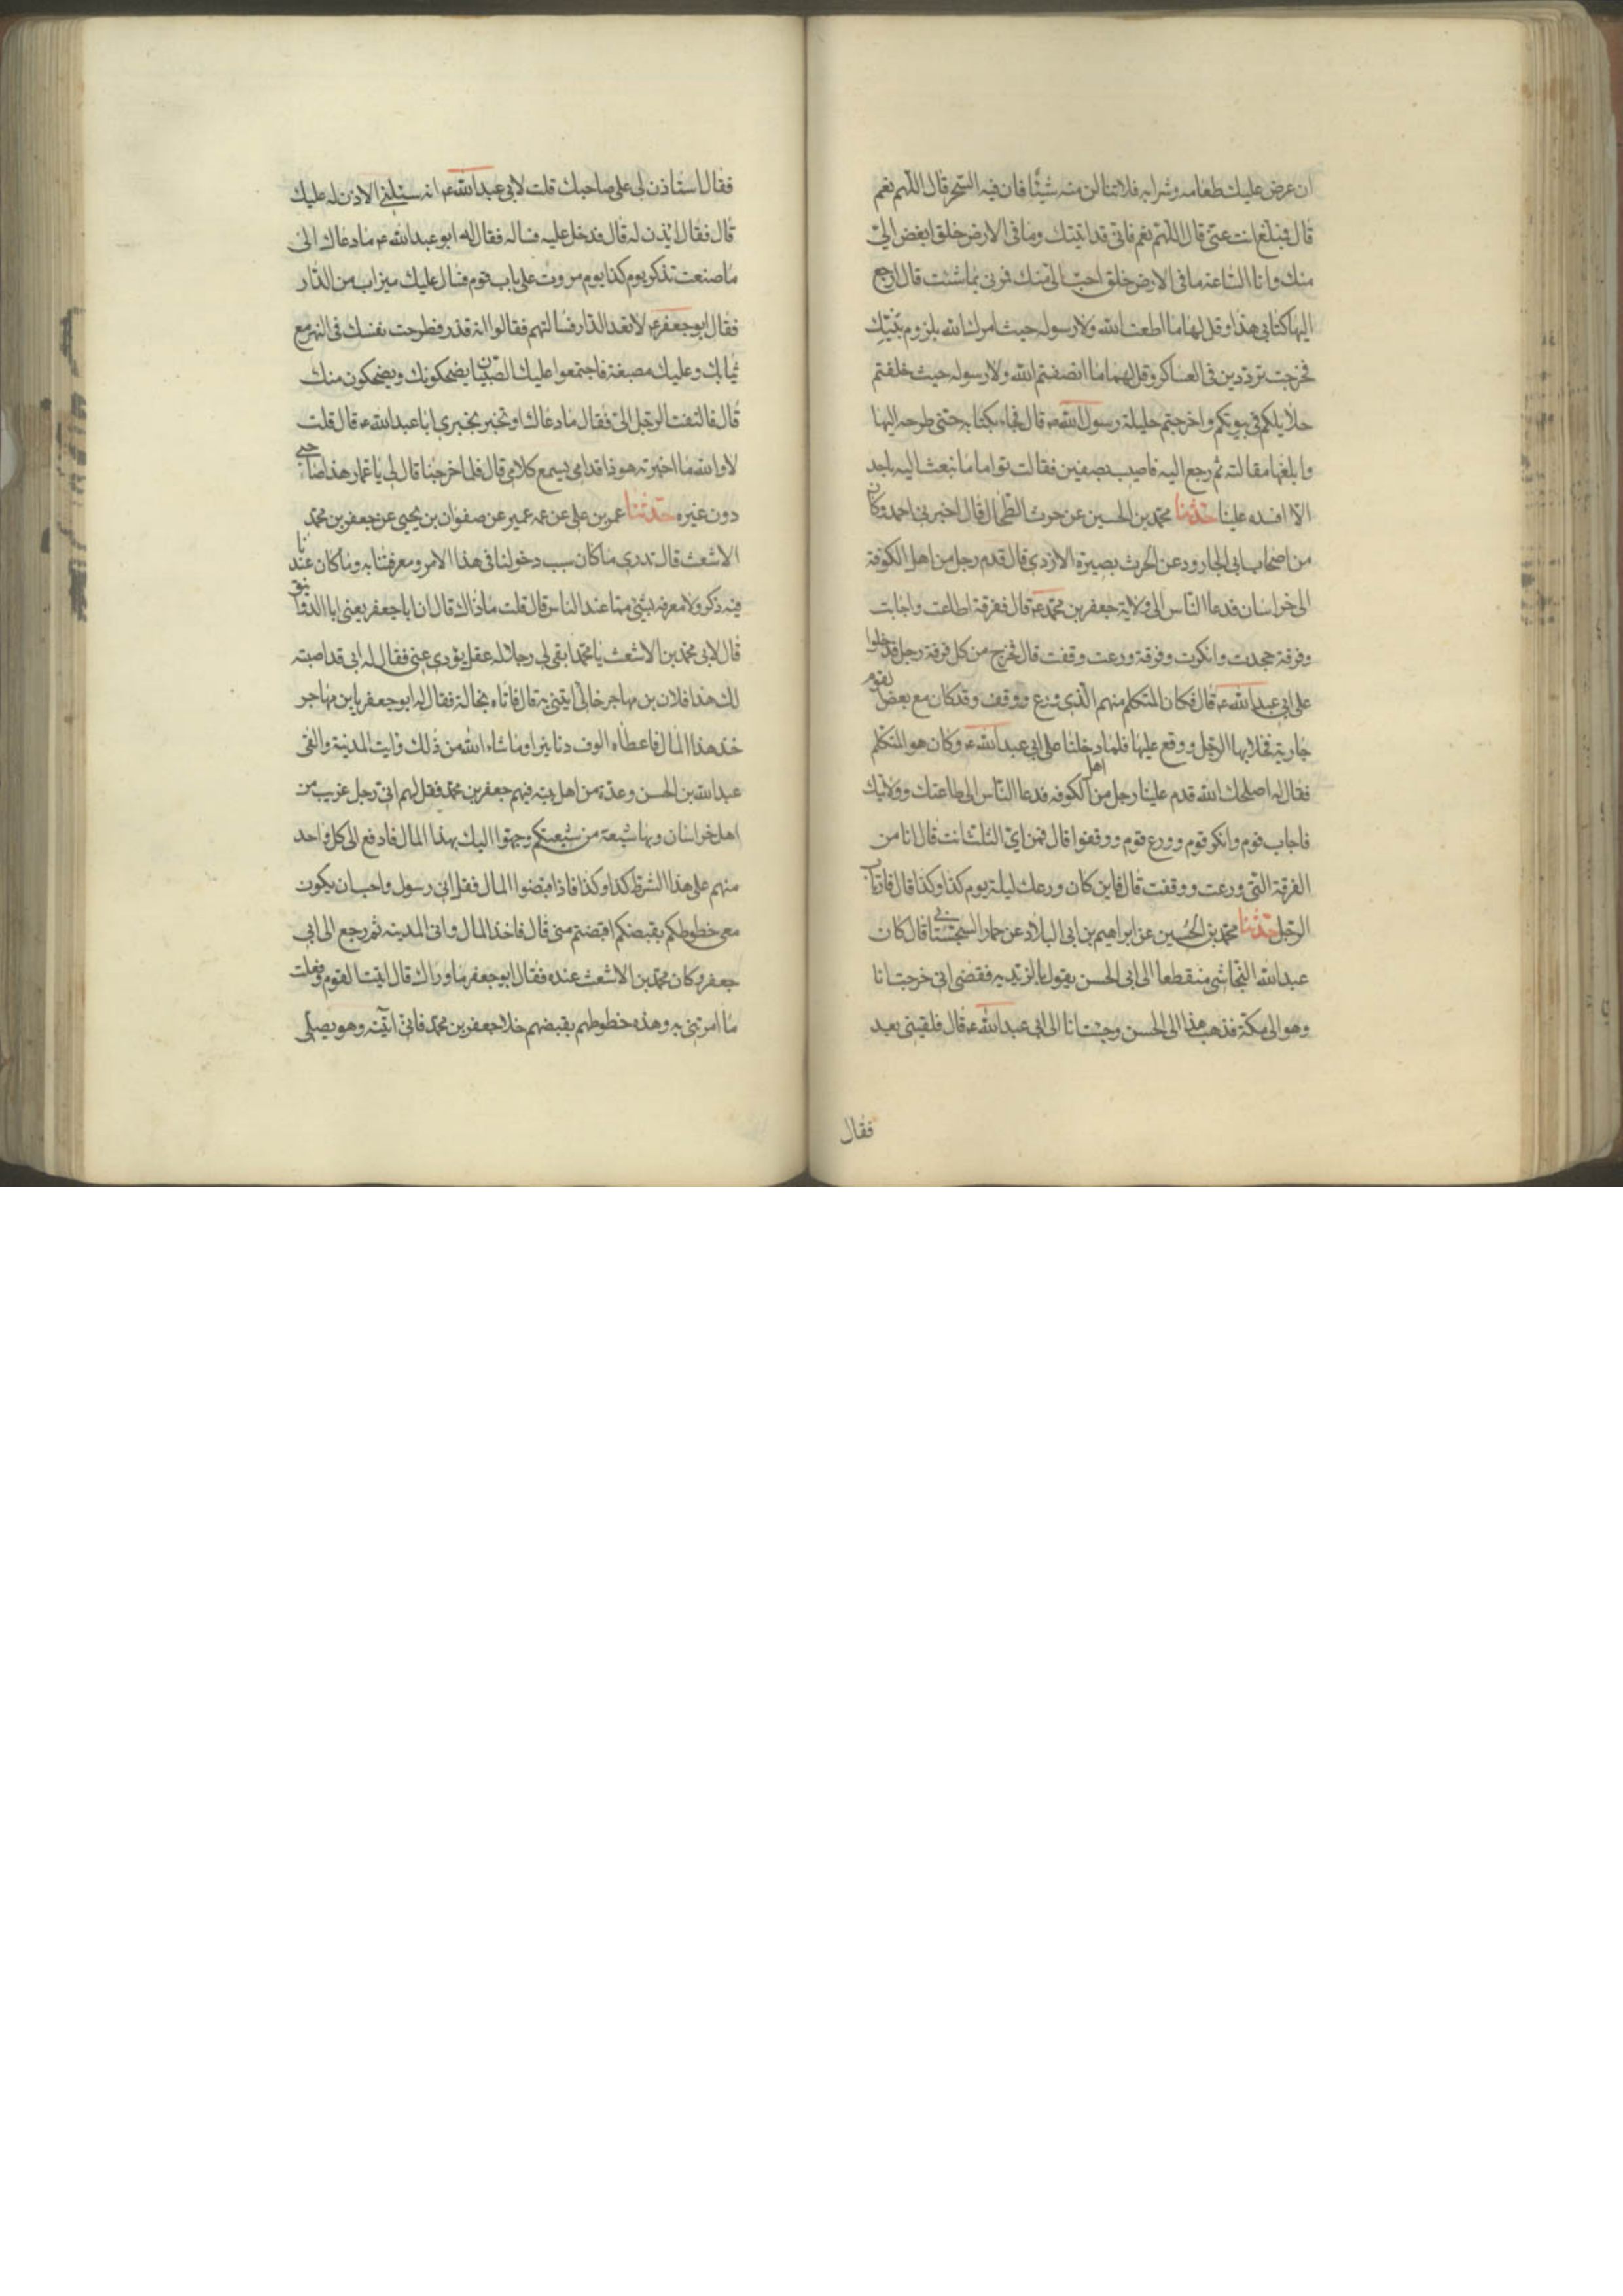 ان عرض عليك طعامه وشرابه فلا تنالن منه شيئا فان فيه السحر قال اللهم نعم
قال فمبلغ انت عنى قال اللهم نعم فانى قد اتيتك وما فى الارض خلق ابغض الىّ
منك وانا الساعة ما فى الارض خلق احب الى منك فمرنى بما شئت قال ارجع
اليها كتابى هذا وقل لها ما اطعت الله ولا رسوله حيث امرك الله بلزوم بيتك
فخرجت تردّدين فى العساكر وقل لهما ما انصفتم الله ولا رسوله حيث خلفتم
حلايلكم فى بيوتكم واخرجتم حليلة رسول الله ص قال فجاء بكتابه حتى طرحه اليها
وابلغها مقالته ثم رجع اليه فاصيب بصفين فقالت ما نبعث اليه باحد
الا افسده علينا حدثنا محمد بن الحسين عن حرث الطحال قال اخبرنى احمد وكان
من اصحاب ابى الجارود عن الحرث بصيرة الازدى قال قدم رجل من اهل الكوفة
الى خراسان فدعا الناس الى ولاية جعفر بن محمد ع قال ففرقة اطاعت واجابت
وفرقة جحدت وانكرت وفرقة ورعت وقفت قال فخرج من كل فرقة رجل فدخلوا
على ابى عبد الله ع قال فكان المتكلم منهم الذى ورع ووقف وقد كان مع بعض القوم
جارية فخلا بها الرجل ووقع عليها فلما دخلنا على ابى عبد الله ع وكان هو المتكلم
فقال له اصلحك الله قدم علينا رجل من اهل الكوفه فدعا الناس الى طاعتك وولايتك
فاجاب قوم وانكر قوم وورع قوم ووقفوا قال فمن اىّ الثلث انت قال انا من
الفرقة التى ورعت ووقفت قال فاين كان ورعك ليلة يوم كذا وكذا قال فارتاب
الرجل حدثنا محمد بن الحسين عن ابراهيم بن ابى البلاد عن عمار السجستانى قال كان
عبد الله النجاشى منقطعا الى ابى الحسن يقول بالزيديه فقضى انى خرجت انا
وهو الى مكة فذهب هذا الى الحسن وجئت انا الى ابى عبد الله ع قال فلقينى بعد
فقال
فقال استاذن لى على صاحبك قلت لابى عبد الله ع انه سئلنى الاذن له عليك
قال فقال ائذن له قال فدخل عليه فساله فقال له ابو عبد الله ع ما دعاك الى
ما صنعت تذكر يوم كذا يوم مررت على باب قوم فسال عليك ميزاب من الدار
فقال ابو جعفر ع فسالتهم فقالوا انه قذر فطرحت نفسك فى النهر مع
ثيابك وعليك مصبغة فاجتمعوا عليك الصبيان يضحكونك ويضحكون منك
قال فالتفت الرجل الى فقال ما دعاك او تخبر بخبرى ابا عبد الله ع قال قلت
لا والله ما اخبرته هو ذا قدامى يسمع كلامى قال فلما خرجنا قال لى يا عمار هذا صاحبى
دون غيره حدثنا عمر بن على عن عمه عمير عن صفوان بن يحيى عن جعفر بن محمد
الاشعث قال تدرى ما كان سبب دخولنا فى هذا الامر ومعرفتنا به وما كان عندنا
فيه ذكر ولا معرفة بشئ مما عند الناس قال قلت ما ذاك قال ان ابا جعفر يعنى ابا الدوانيق
قال لابى محمد بن الاشعث يا محمد ابغى لى رجلا له عقل يؤدى عنى فقال له ابى قد اصبته
لك هذا فلان بن مهاجر خالى قال ايتنى به قال فاتاه بخاله فقال له ابو جعفر يا بن مهاجر
خذ هذا المال فاعطاه الوف دنانير او ما شاء الله من ذلك وايت المدينة والق
عبد الله بن الحسن وعدة من اهل بيته فيهم جعفر بن محمد فقل لهم انى رجل غريب من
اهل خراسان وبها شيعة من شيعتكم وجهوا اليك بهذا المال فادفع الى كل واحد
منهم على هذا الشرط كذا وكذا فاذا قبضوا المال فقل انى رسول واحب ان يكون
معى خطوطكم بقبضكم ما قبضتم منى قال فاخذ المال واتى المدينه ثم رجع الى ابى
جعفر وكان محمد بن الاشعث عنده فقال ابو جعفر ما وراك قال اتيت القوم وفعلت
ما امرتنى به وهذه خطوطهم بقبضهم خلا جعفر بن محمد فانى اتيته وهو يصلى